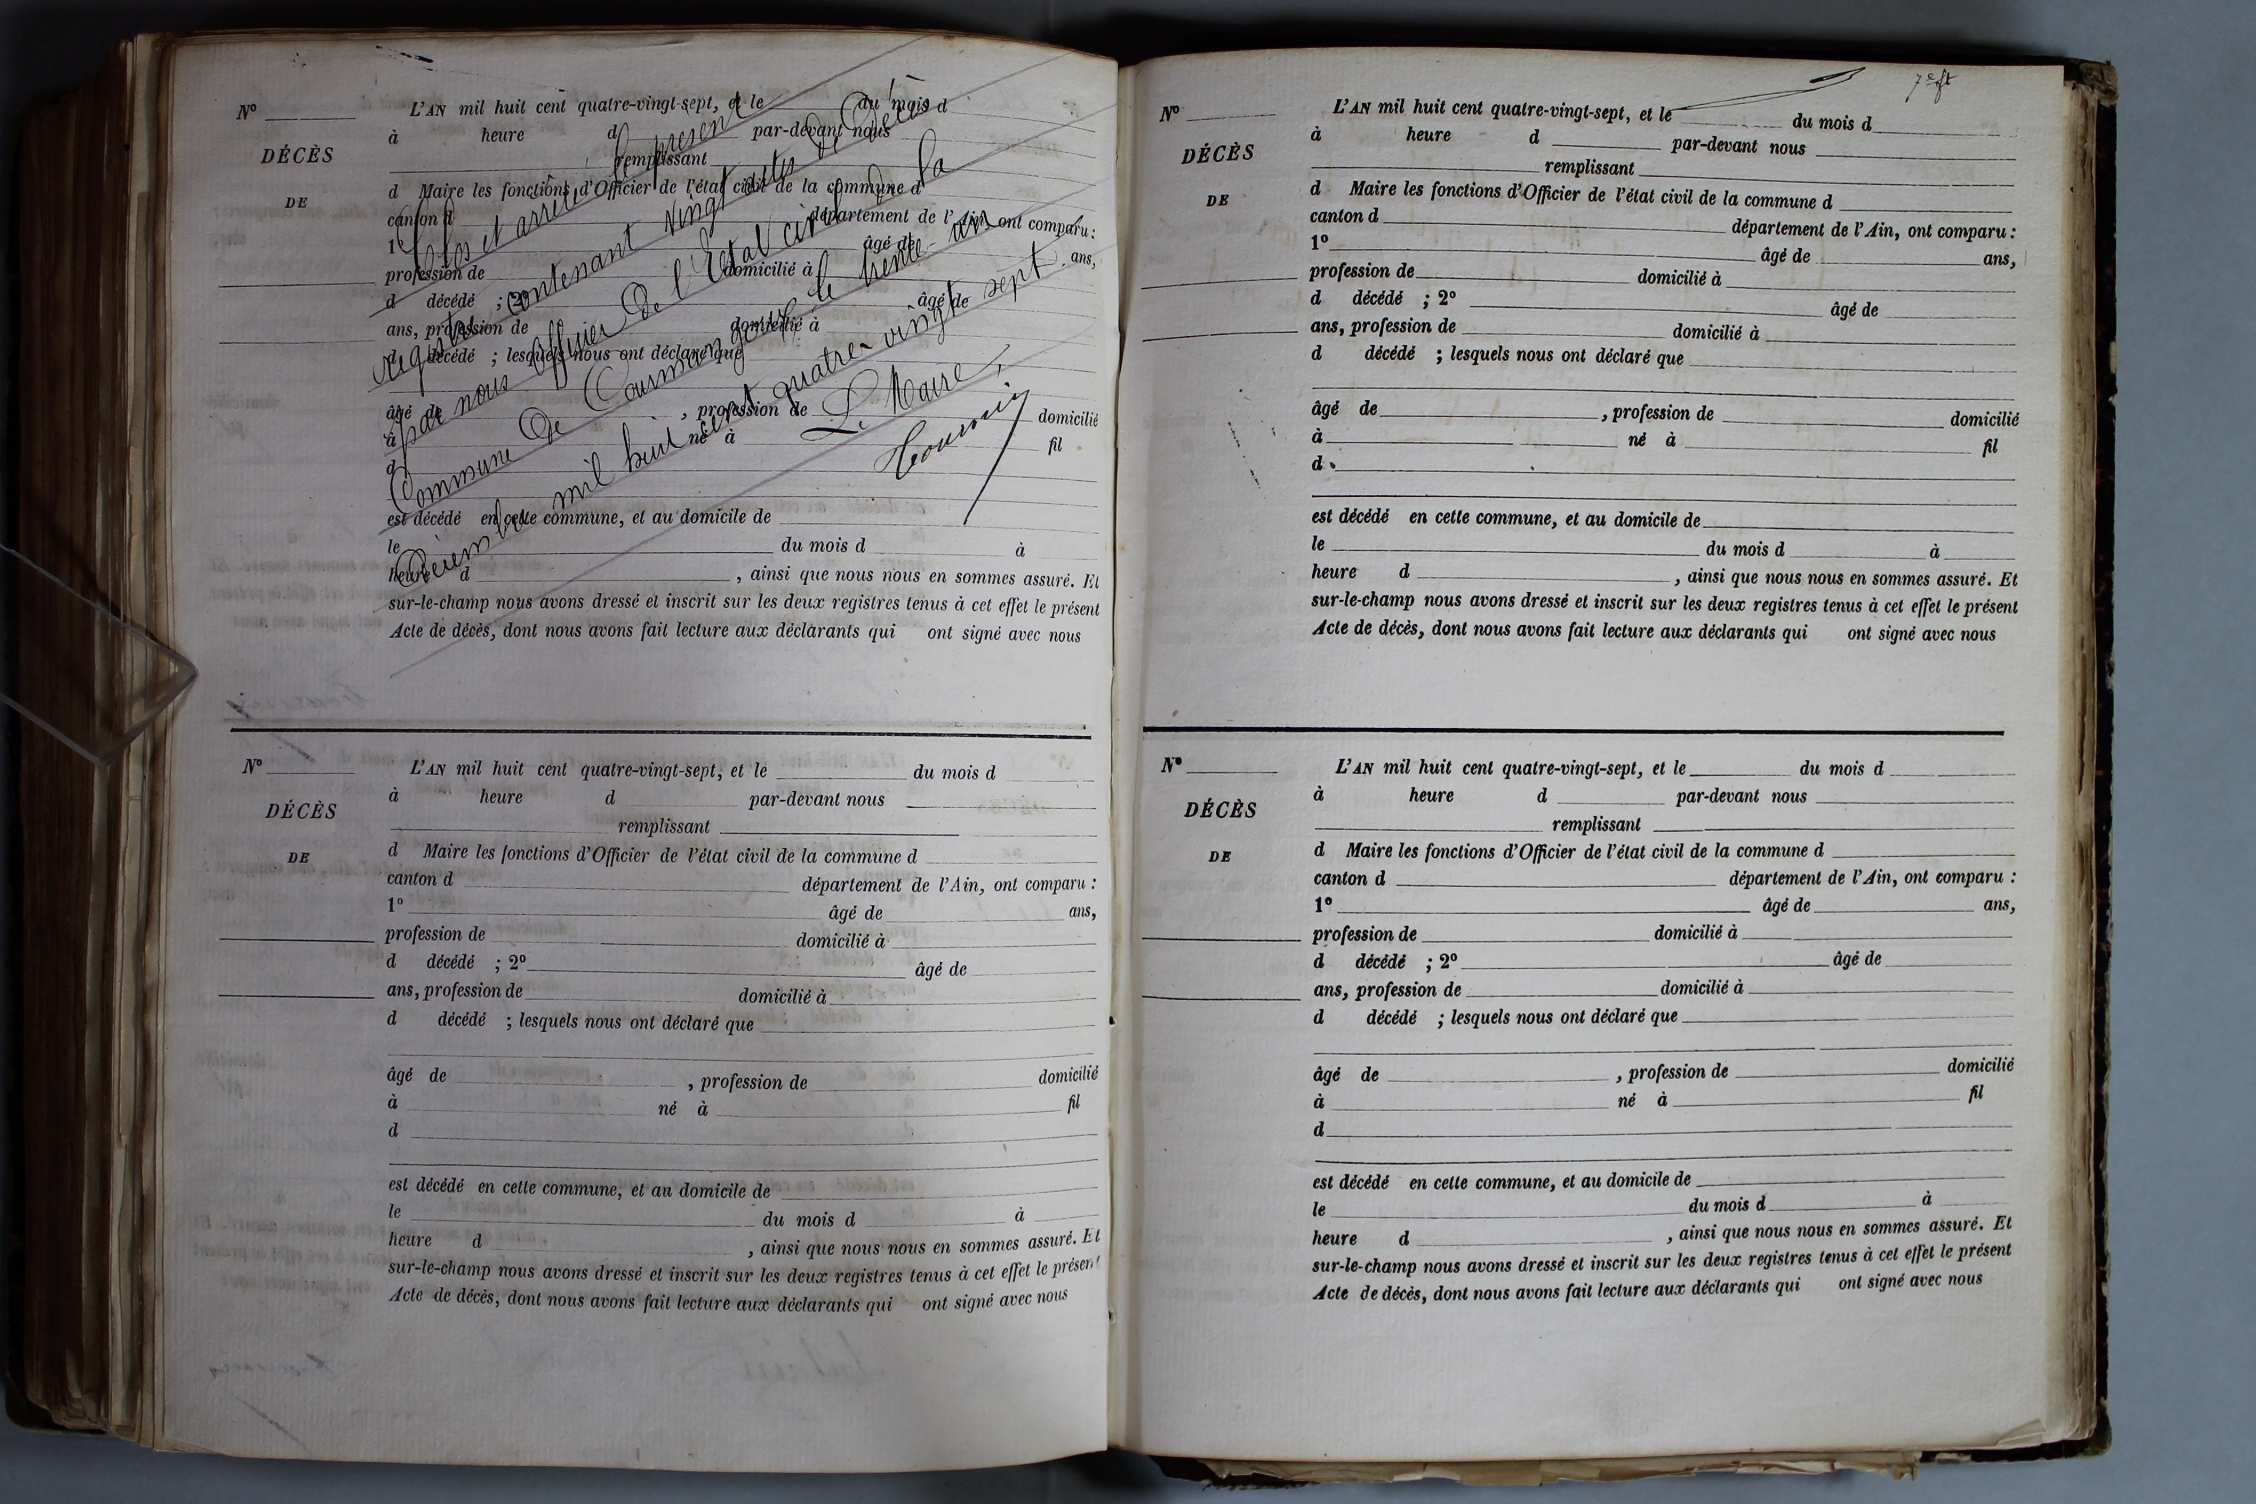 N°
DÉCÈS
DE
L'AN mil huit cent quatre-vingt-sept, et le du mois d
à heure d par-devant nous
remplissant
d Maire les fonctions d'Officier de l'état civil de la commune d
canton d département de l'Ain, ont comparu :
1° âgé de ans,
profession de domicilié à
d décédé ; 2° âgé de
ans, profession de domicilié à
d décédé ; lesquels nous ont déclaré que
âgé de , profession de domicilié
à né à fil
d
est décédé en cette commune, et au domicile de
le du mois d à
heure d , ainsi que nous nous en sommes assuré. Et
sur-le-champ nous avons dressé et inscrit sur les deux registres tenus à cet effet le présent
Acte de décès, dont nous avons fait lecture aux déclarants qui ont signé avec nous
Clos et arrêté le présent
registre contenant vingt actes de Décès
par nous Officier de l'Etat civil de la
Commune de Courmangoux le trente un
Décembre mil huit cent quatre vingt sept.
Le Maire,
N°
DÉCÈS
DE
L'AN mil huit cent quatre-vingt-sept, et le du mois d
à heure d par-devant nous
remplissant
d Maire les fonctions d'Officier de l'état civil de la commune d
canton d département de l'Ain, ont comparu :
1° âgé de ans,
profession de domicilié à
d décédé ; 2° âgé de
ans, profession de domicilié à
d décédé ; lesquels nous ont déclaré que
âgé de , profession de domicilié
à né à fil
d
est décédé en cette commune, et au domicile de
le du mois d à
heure d , ainsi que nous nous en sommes assuré. Et
sur-le-champ nous avons dressé et inscrit sur les deux registres tenus à cet effet le présent
Acte de décès, dont nous avons fait lecture aux déclarants qui ont signé avec nous
7e ft
N°
DÉCÈS
DE
L'AN mil huit cent quatre-vingt-sept, et le du mois d
à heure d par-devant nous
remplissant
d Maire les fonctions d'Officier de l'état civil de la commune d
canton d département de l'Ain, ont comparu :
1° âgé de ans,
profession de domicilié à
d décédé ; 2° âgé de
ans, profession de domicilié à
d décédé ; lesquels nous ont déclaré que
âgé de , profession de domicilié
à né à fil
d
est décédé en cette commune, et au domicile de
le du mois d à
heure d , ainsi que nous nous en sommes assuré. Et
sur-le-champ nous avons dressé et inscrit sur les deux registres tenus à cet effet le présent
Acte de décès, dont nous avons fait lecture aux déclarants qui ont signé avec nous
N°
DÉCÈS
DE
L'AN mil huit cent quatre-vingt-sept, et le du mois d
à heure d par-devant nous
remplissant
d Maire les fonctions d'Officier de l'état civil de la commune d
canton d département de l'Ain, ont comparu :
1° âgé de ans,
profession de domicilié à
d décédé ; 2° âgé de
ans, profession de domicilié à
d décédé ; lesquels nous ont déclaré que
âgé de , profession de domicilié
à né à fil
d
est décédé en cette commune, et au domicile de
le du mois d à
heure d , ainsi que nous nous en sommes assuré. Et
sur-le-champ nous avons dressé et inscrit sur les deux registres tenus à cet effet le présent
Acte de décès, dont nous avons fait lecture aux déclarants qui ont signé avec nous